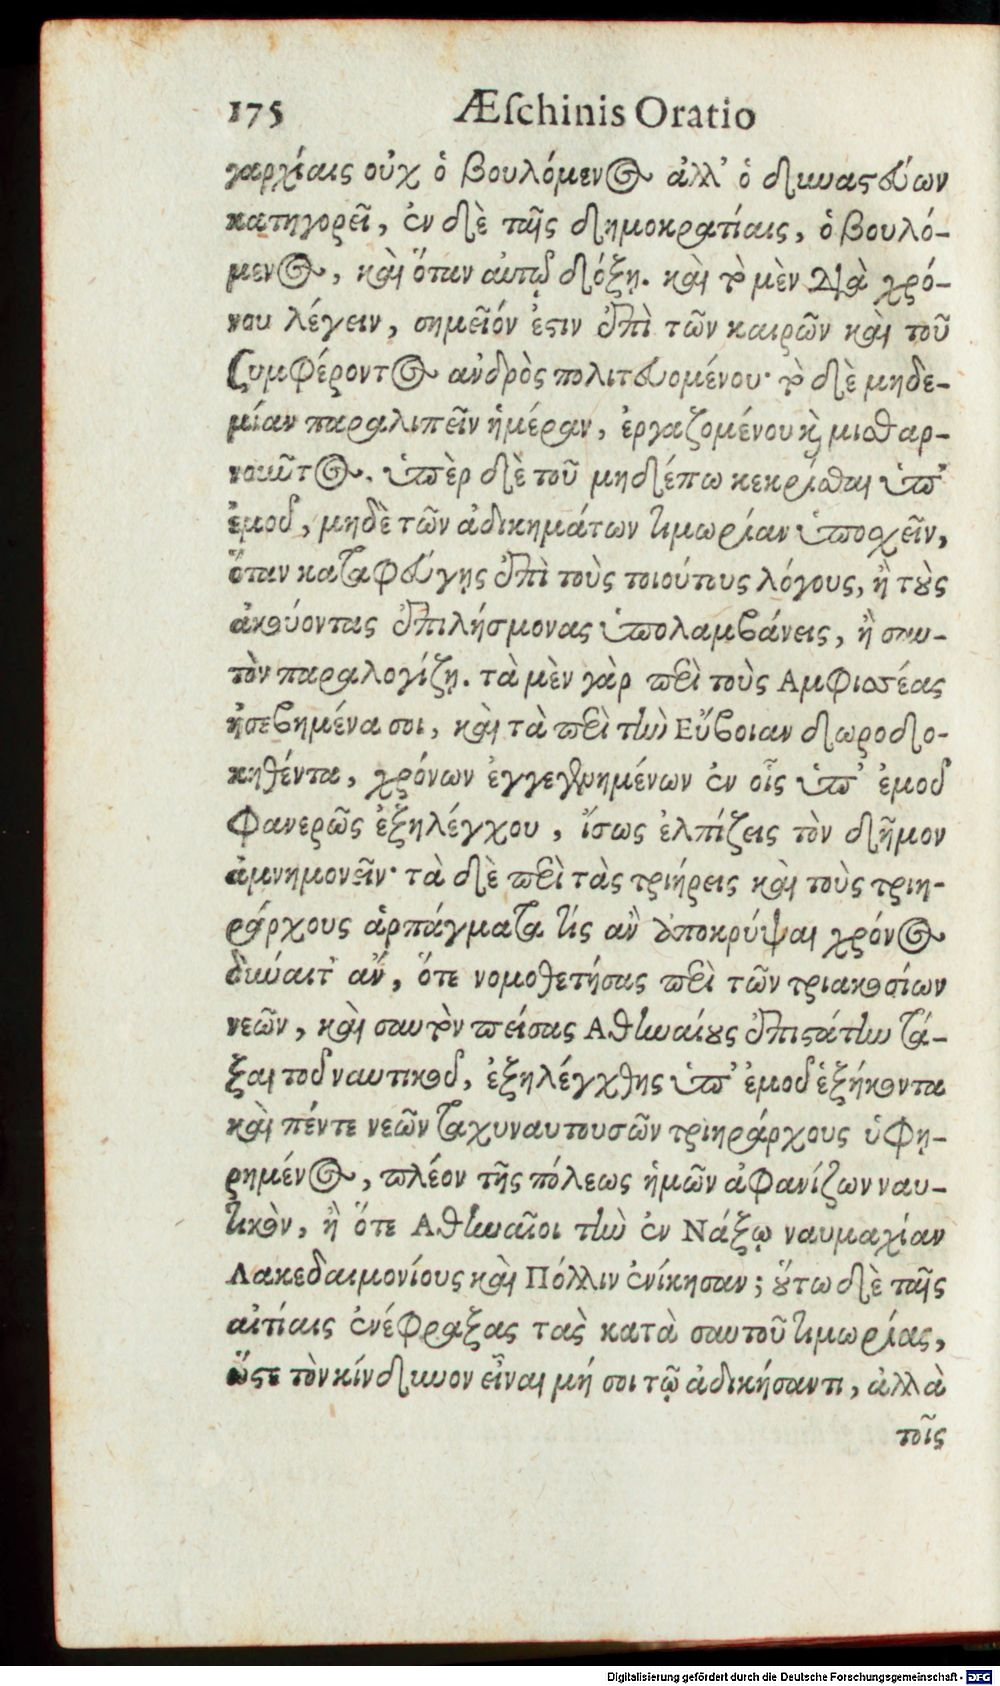 175 Æſchinis Oratio
γαρχίαις οὐχ ὁ βουλόμενος ἀλλ' ὁ δυναστεύων
κατηγορεῖ, ἐν δὲ ταῖς δημοκρατίαις, ὁ βουλό-
μενος, καὶ ὅταν αὐτῷ δόξῃ. καὶ τὸ μὲν διὰ χρό-
νου λέγειν, σημεῖόν ἐστιν ἐπὶ τῶν καιρῶν καὶ τοῦ
συμφέροντος ἀνδρὸς πολιτευομένου· τὸ δὲ μηδε-
μίαν παραλιπεῖν ἡμέραν, ἐργαζομένου καὶ μισθαρ-
νοῦντος. ὑπὲρ δὲ τοῦ μηδέπω κεκρίσθαι ὑπ'
ἐμοῦ, μηδὲ τῶν ἀδικημάτων τιμωρίαν ὑποσχεῖν,
ὅταν καταφεύγῃς ἐπὶ τοὺς τοιούτους λόγους, ἢ τοὺς
ἀκούοντας ἐπιλήσμονας ὑπολαμβάνεις, ἢ σαυ-
τὸν παραλογίζῃ. τὰ μὲν γὰρ περὶ τοὺς Αμφισσέας
ἠσεβημένα σοι, καὶ τὰ περὶ τὴν Εὔβοιαν δωροδο-
κηθέντα, χρόνων ἐγγεγενημένων ἐν οἷς ὑπ' ἐμοῦ
φανερῶς ἐξηλέγχου, ἴσως ἐλπίζεις τὸν δῆμον
ἀμνημονεῖν· τὰ δὲ περὶ τὰς τριήρεις καὶ τοὺς τριη-
ράρχους ἁρπάγματα τίς ἂν ἀποκρύψαι χρόνος
δύναιτ' ἂν, ὅτε νομοθετήσας περὶ τῶν τριακοσίων
νεῶν, καὶ σαυτὸν πείσας Αθηναίους ἐπιστάτην τά-
ξαι τοῦ ναυτικοῦ, ἐξηλέγχθης ὑπ' ἐμοῦ ἑξήκοντα
καὶ πέντε νεῶν ταχυναυτουσῶν τριηράρχους ὑφῃ-
ρημένος, πλέον τῆς πόλεως ἡμῶν ἀφανίζων ναυ-
τικὸν, ἢ ὅτε Αθηναῖοι τὴν ἐν Νάξῳ ναυμαχίαν
Λακεδαιμονίους καὶ Πόλλιν ἐνίκησαν; οὕτω δὲ ταῖς
αἰτίαις ἐνέφραξας τὰς κατὰ σαυτοῦ τιμωρίας,
ὥστε τὸν κίνδυνον εἶναι μή σοι τῷ ἀδικήσαντι, ἀλλὰ
τοῖς
Digitalisierung gefördert durch die Deutsche Forschungsgemeinschaft - DFG